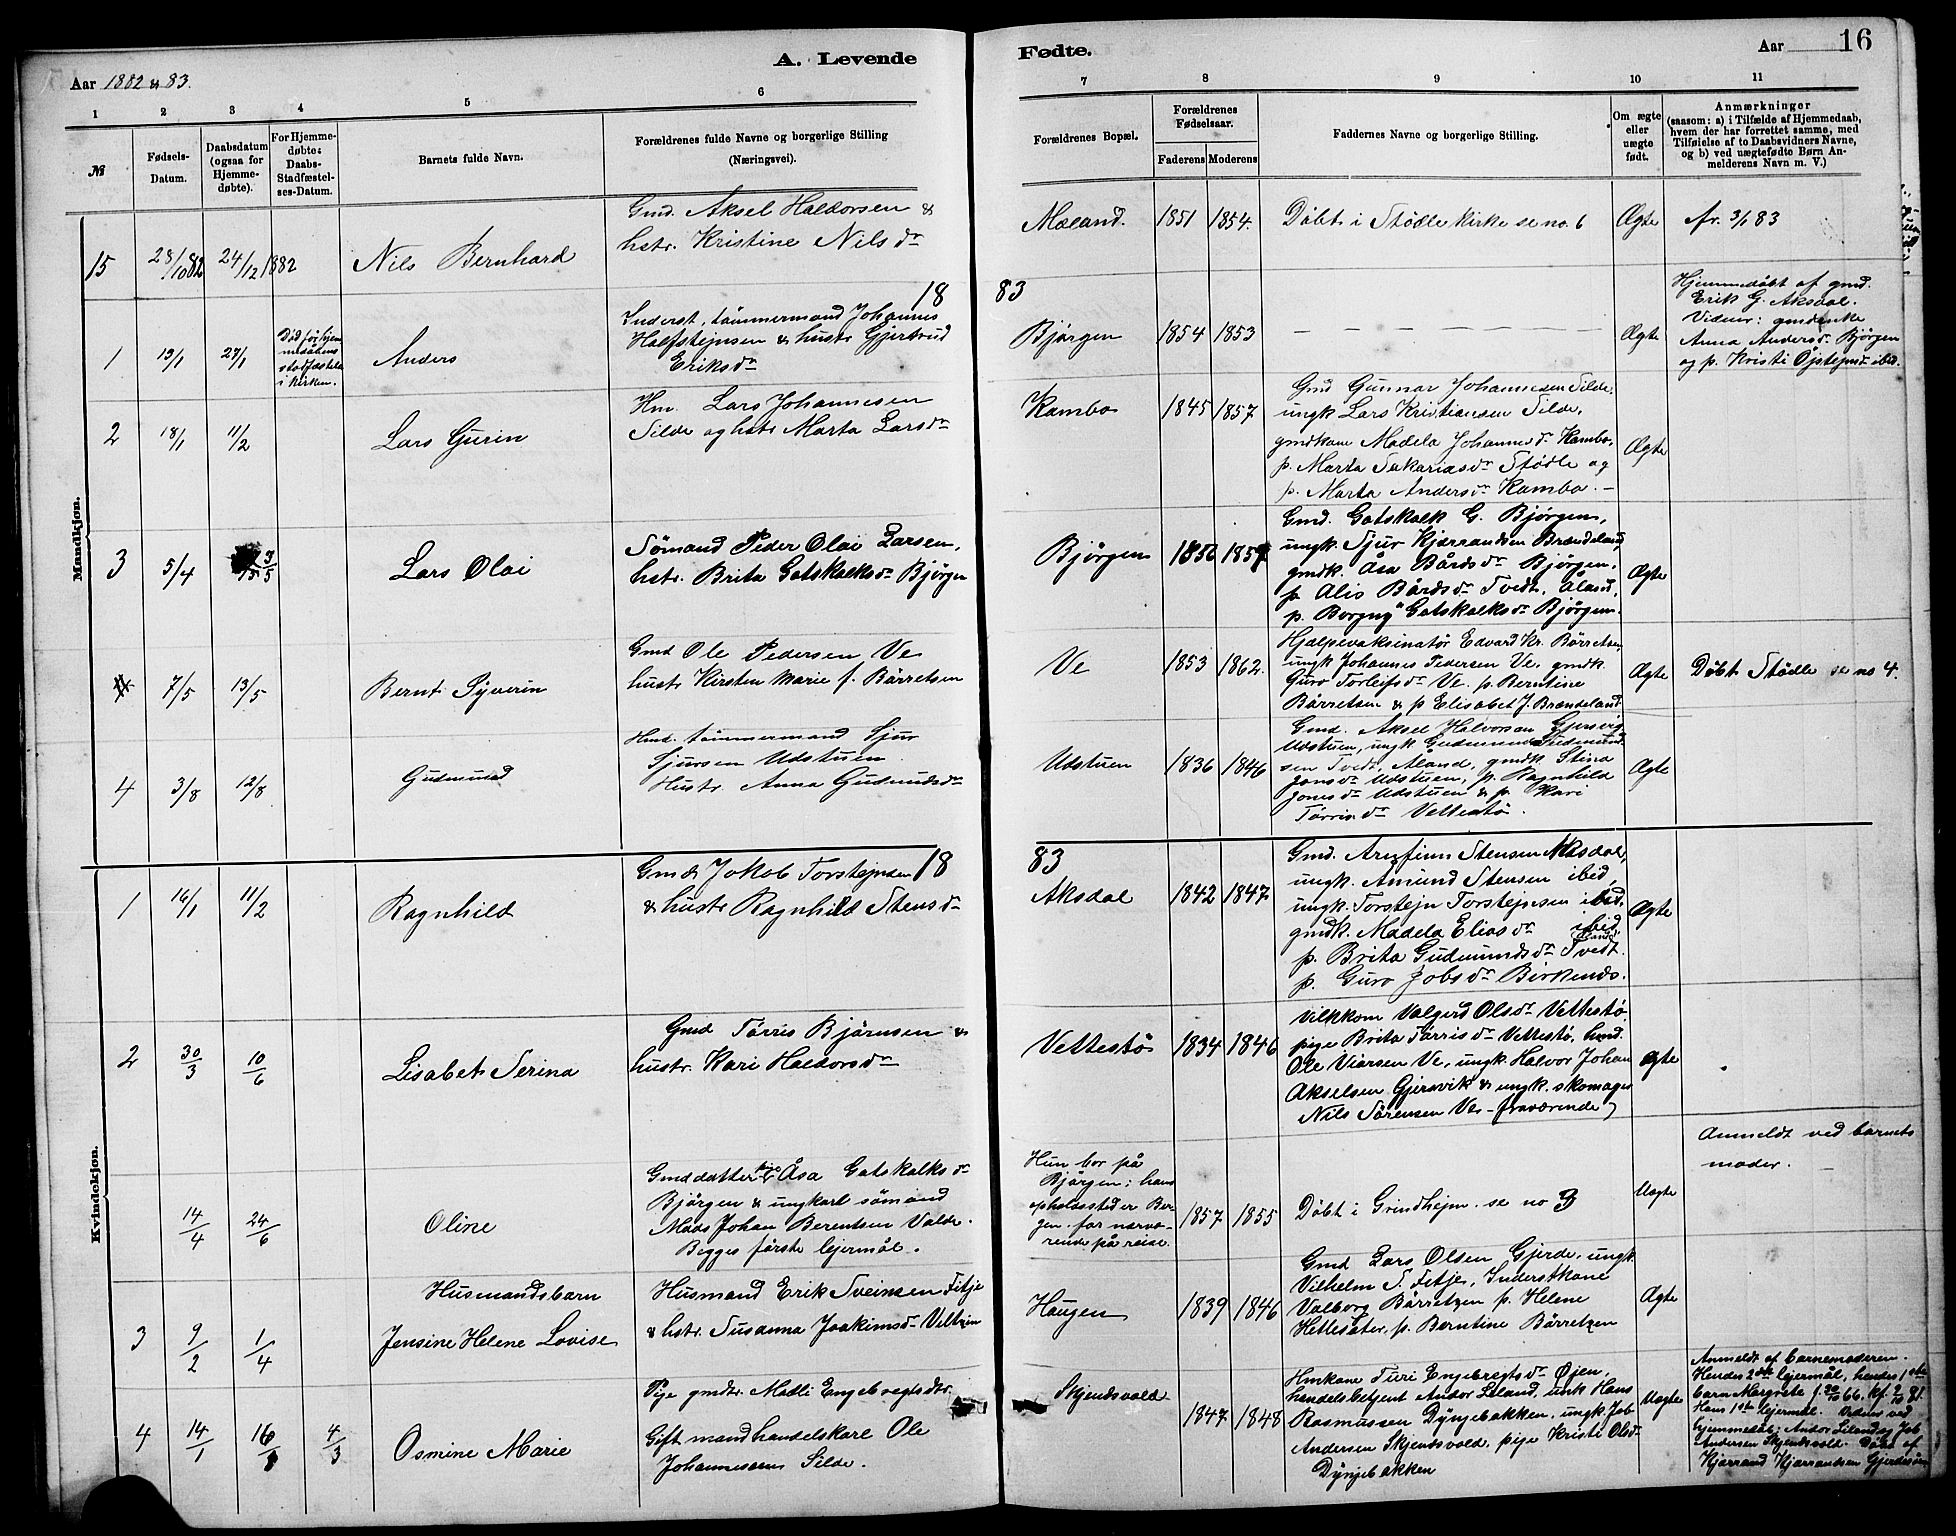 A. Levende
Fødte.
Aar 16
Aar 1882 & 83.
1 2 3 4 5 6 7 8 9 10 11
№
Fødsels-
Datum.
Daabsdatum
(ogsaa for
Hjemme-
døbte).
For Hjemme-
døbte:
Daabs-
Stadfæstel-
ses-Datum.
Barnets fulde Navn.
Forældrenes fulde Navne og borgerlige Stilling
(Næringsvei).
Forældrenes Bopæl.
Forældrenes
Fødselsaar.
Faderens Moderens
Faddernes Navne og borgerlige Stilling.
Om ægte
eller
uægte
født.
Anmærkninger
(saasom: a) i Tilfælde af Hjemmedaab,
hvem der har forrettet samme, med
Tilføielse af to Daabsvidners Navne,
og b) ved uægtefødte Børn An-
melderens Navn m. V.)
Mandkjøn.
15 28/10 82 24/12 1882 Nils Bernhard
Gmd. Aksel Haldorsen &
hstr. Kristine Nilsdr
Moland. 1851 1854. Døbt i Stødle kirke se no. 6 Ægte Av. 3/1 83
18 83
1 13/1 27/1
Død før hjem
medåbens
stadfæstelse
i kirken.
Anders
Inderst, tømmermand Johannes
Halfstejnsen & hustr Gjertrud
Eriksdr
Bjørgen 1854 1853 — — — — — Ægte
Hjemmedøbt af gmd.
Erik G. Aksdal.
Vidner: gmdenke
Anna Andersdr. Bjørgen
og p. Kristi Øjstejnsdr ibid.
2 18/1 11/2 Lars Gurin
Hm. Lars Johannesen
Silde og hstr Marta Larsdr
Kambo 1845 1857.
Gmd Gunnar Johannesen Silde,
ungk Lars Kristiansen Silde,
gmdkone Madela Johannesdr Kambo,
p. Marta Sakariasdr Stødle og
p. Marta Andersdr Kambo. —
Ægte
3 5/4 15 3/5 Lars Olai
Sömand Peder Olai Larsen,
hstr. Brita Gatskalksdr Bjørgen
Bjørgen 1856 1859
Gmd. Gatskalk G. Bjørgen,
ungk. Sjur Kjarrandsen Brændeland,
gmdk. Åsa Bårdsdr Bjørgen,
p Alis Bårdsdr Tvedt, Åland,
p. Borgny Gatskalksdr Bjørgen.
Ægte
7/5 13/5 Bernt Syverin
Gmd Ole Pedersen Ve
hustr Kirsten Marie f. Børretsen
Ve 1853 1862.
Hjælpevaksinatør Edvard Kr. Børretsen,
ungk Johannes Pedersen Ve, gmdk.
Guro Torleifsdr Ve. p. Berntine
Børretsen & p Elisabet J. Brændeland
Ægte Døbt Stødle se no 4.
4 3/8 12/8 Gudmund
Hmd. tømmermand Sjur
Sjursen Udstuen.
Hustr. Anna Gudmundsdr
Udstuen 1836 1846
Gmd. Aksel Halvorsen Gjersvig
Udstuen, ungk Gudmund Gudmund
sen Tvedt, Åland, gmdk Stina
Jonsdr Udstuen, p. Ragnhild
Jonsdr Udstuen & p. Kari
Tørrisdr Vettestø.
Ægte
Kvindekjøn.
18 83
1 16/1 11/2 Ragnhild
Gmd Jakob Torstejnsen
& hustr Ragnhild Stensdr
Aksdal 1842 1847
Gmd. Arnfinn Stensen Aksdal,
ungk. Amund Stensen ibid,
ungk. Torstejn Torstejnsen ibid.
gmdk. Madela Eliasdr ibid,
p. Brita Gudmundsdr Tvedt
p. Guro Jobsdr Birkenes.
Ægte
2 30/3 10/6 Lisabet Serina
Gmd Tørris Bjørnsen &
hustr. Kari Haldorsdr
Vettestø 1834 1846
Vilkkom Valgerd Olsdr Vettestø,
pige Brita Tørrisdr Vettestø, hmd.
Ole Viarsen Ve, ungk. Halvor Johan
Akselsen Gjersvik & ungk. skomager
Nils Sørensen Ve - fraværende
Ægte
14/4 24/6 Oline
Gmddatter pige Åsa Gatskalksdr
Bjørgen & ungkarl sømand
Mads Johan Berentsen Valde.
Begges første lejermål.
Hun bor på
Bjørgen; hans
opholdssted er Ber
gen. for nærvæ-
rende på reise.
1857 1855 Døbt i Grindhejm. se no 3 Uægte
Anmeldt ved barnets
moder. —
3 9/2 1/4
Husmandsbarn
Jensine Helene Lovise
Husmand Erik Sveinsen Fitje
& hstr. Susanna Joakimsdr Veltzin
Haugen 1839 1846
Gmd Lars Olsen Gjerde, ungk.
Vilhelm S. Fitje, Inderstkone
Valborg Børretzen p. Helene
Hettesæter, p. Berntine Børretzen
Ægte
4 14/1 16 4/3 Osmine Marie
Pige gmdtr. Madli Engebregtsdtr.
Gift mand handelskarl Ole
Johannesen Silde.
Skjendsvold 1847 1848
Hmkone Turi Engebregtsdr Øjen,
handelsbetjent Andor Leland, unk Hans
Rasmussen Dynjebakken, ungk Job
Andersen Skjendsvold, pige Kristi Olsdr
Dynjebakken
Uægte
Anmeldt af barnemoderen.
Hendes 2det lejermål, hendes 1ste
barn Margrete f. 20/10 66, kf. 2/10 81.
Hans 1ste lejermål. Vidner ved
hjemmedåb: Andor Leland og Job
Andersen Skjendsvold. Døbt af
Kjarrand Kjarrandsen Gjerdesøen